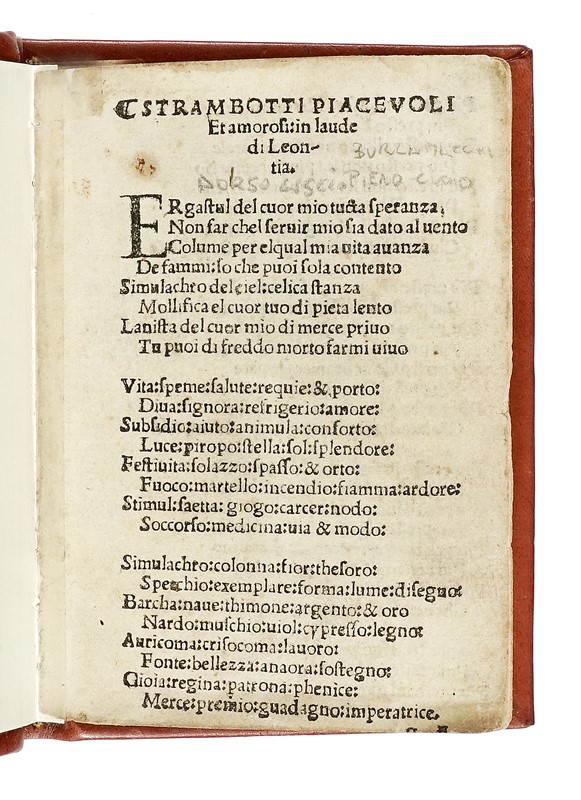 ¶ STRAMBOTTI PIACEVOLI
Et amoroſi:in laude
di Leon-
tia.
ERgaſtul del cuor mio tucta ſperanza,
Non far chel ſeruir mio ſia dato al uento
Colume per elqual mia uita auanza
De fammi:ſo che puoi ſola contento
Simulachro del ciel:celica ſtanza
Mollifica el cuor tuo di pieta lento
Laniſta del cuor mio di merce priuo
Tu puoi di freddo morto farmi uiuo
Vita:ſpeme:ſalute:requie:& porto:
Diua:ſignora:refrigerio:amore:
Subſidio:aiuto:animula:conforto:
Luce:piropo:ſtella:ſol:ſplendore:
Feſtiuita:ſolazzo:ſpaſſo:& orto:
Fuoco:martello:incendio:fiamma:ardore:
Stimul:ſaetta: giogo:carcer:nodo:
Soccorſo:medicina:uia & modo:
Simulachro:colonna:fior:theſoro:
Specchio:exemplare:forma:lume:diſegno:
Barcha:naue:thimone:argento:& oro
Nardo:muſchio:uiol:cypreſſo:legno:
Auricoma:criſocoma:lauoro:
Fonte:bellezza:anaora:ſoſtegno:
Gioia:regina:patrona:phenice:
Merce:premio:guadagno:imperatrice.